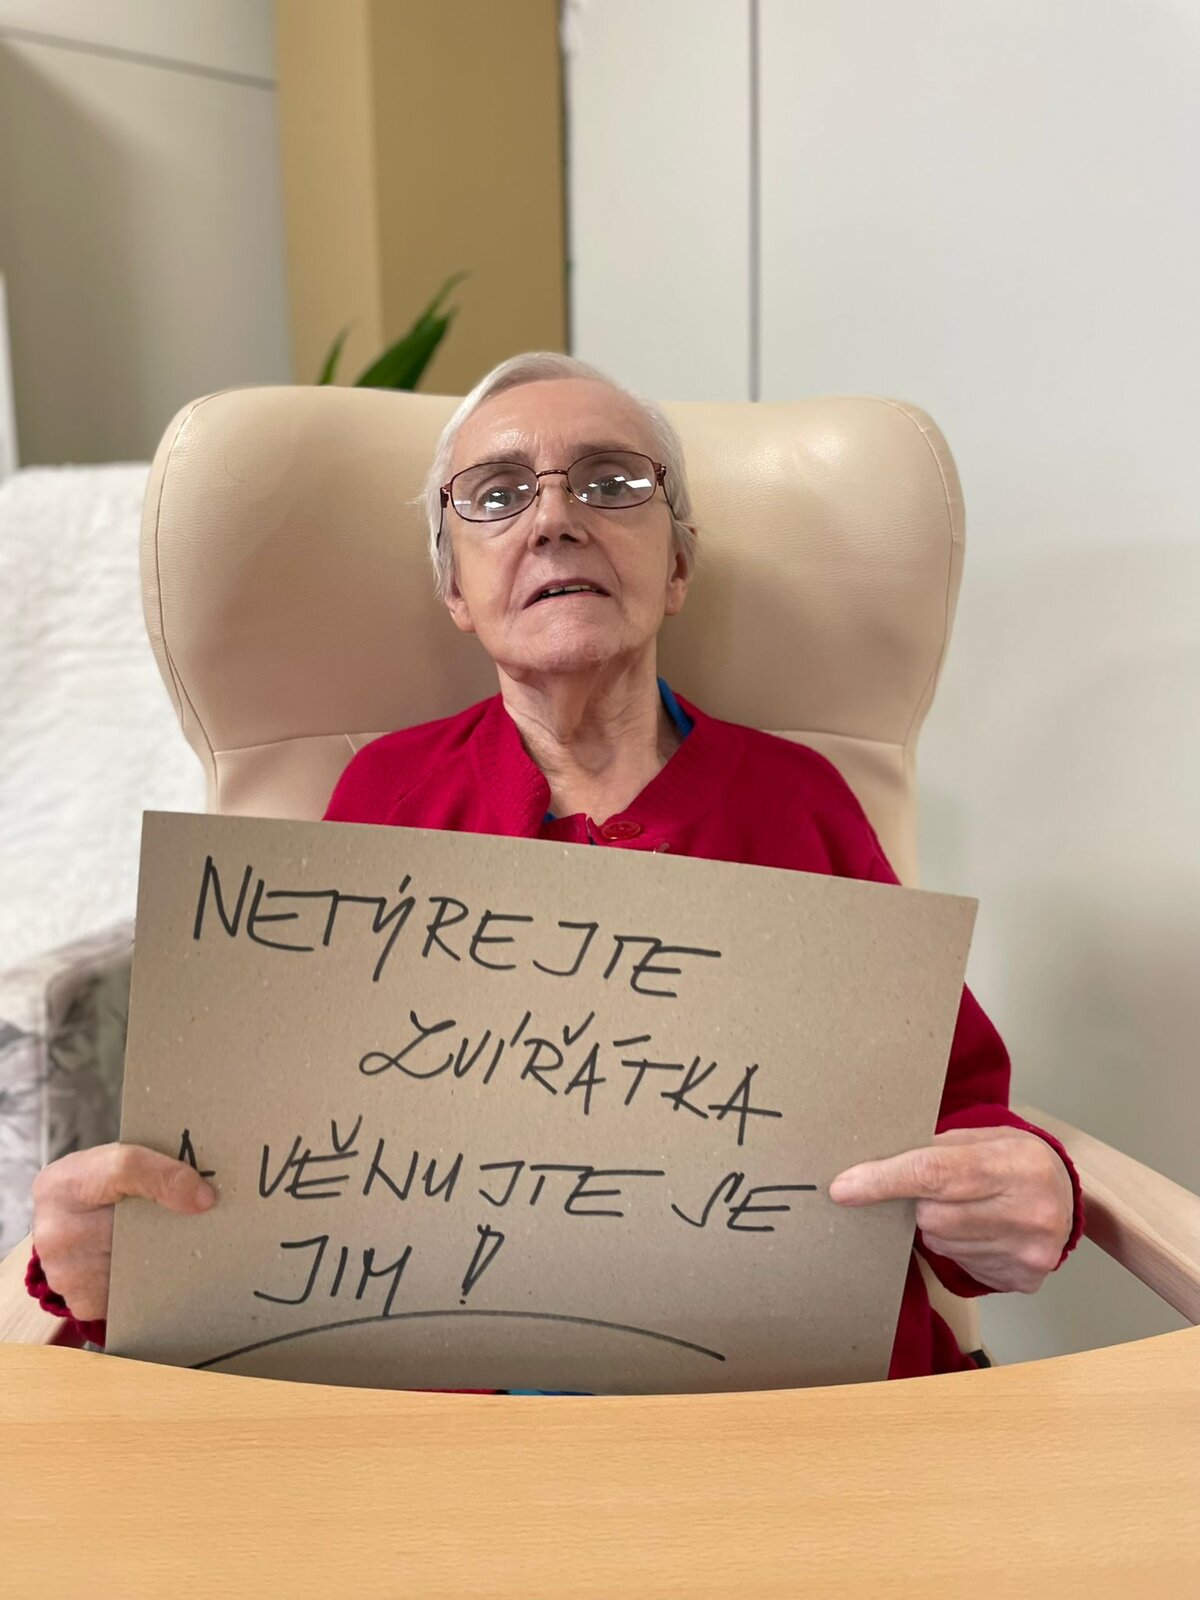 NETÝREJTE
ZVÍŘÁTKA
A VĚNUJTE SE
JIM!